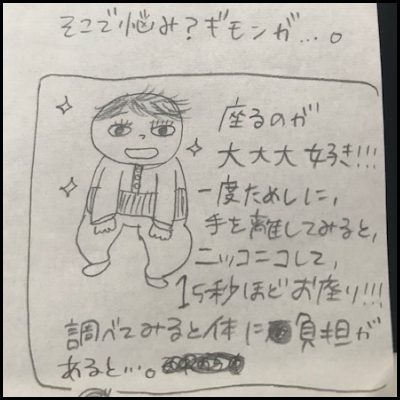 そこで悩み?ギモンが…。
座るのが
大大大好き!!!
一度ためしに,
手を離してみると,
ニッコニコして,
15秒ほどお座り!!!
調べてみると体に負担が
あると…。